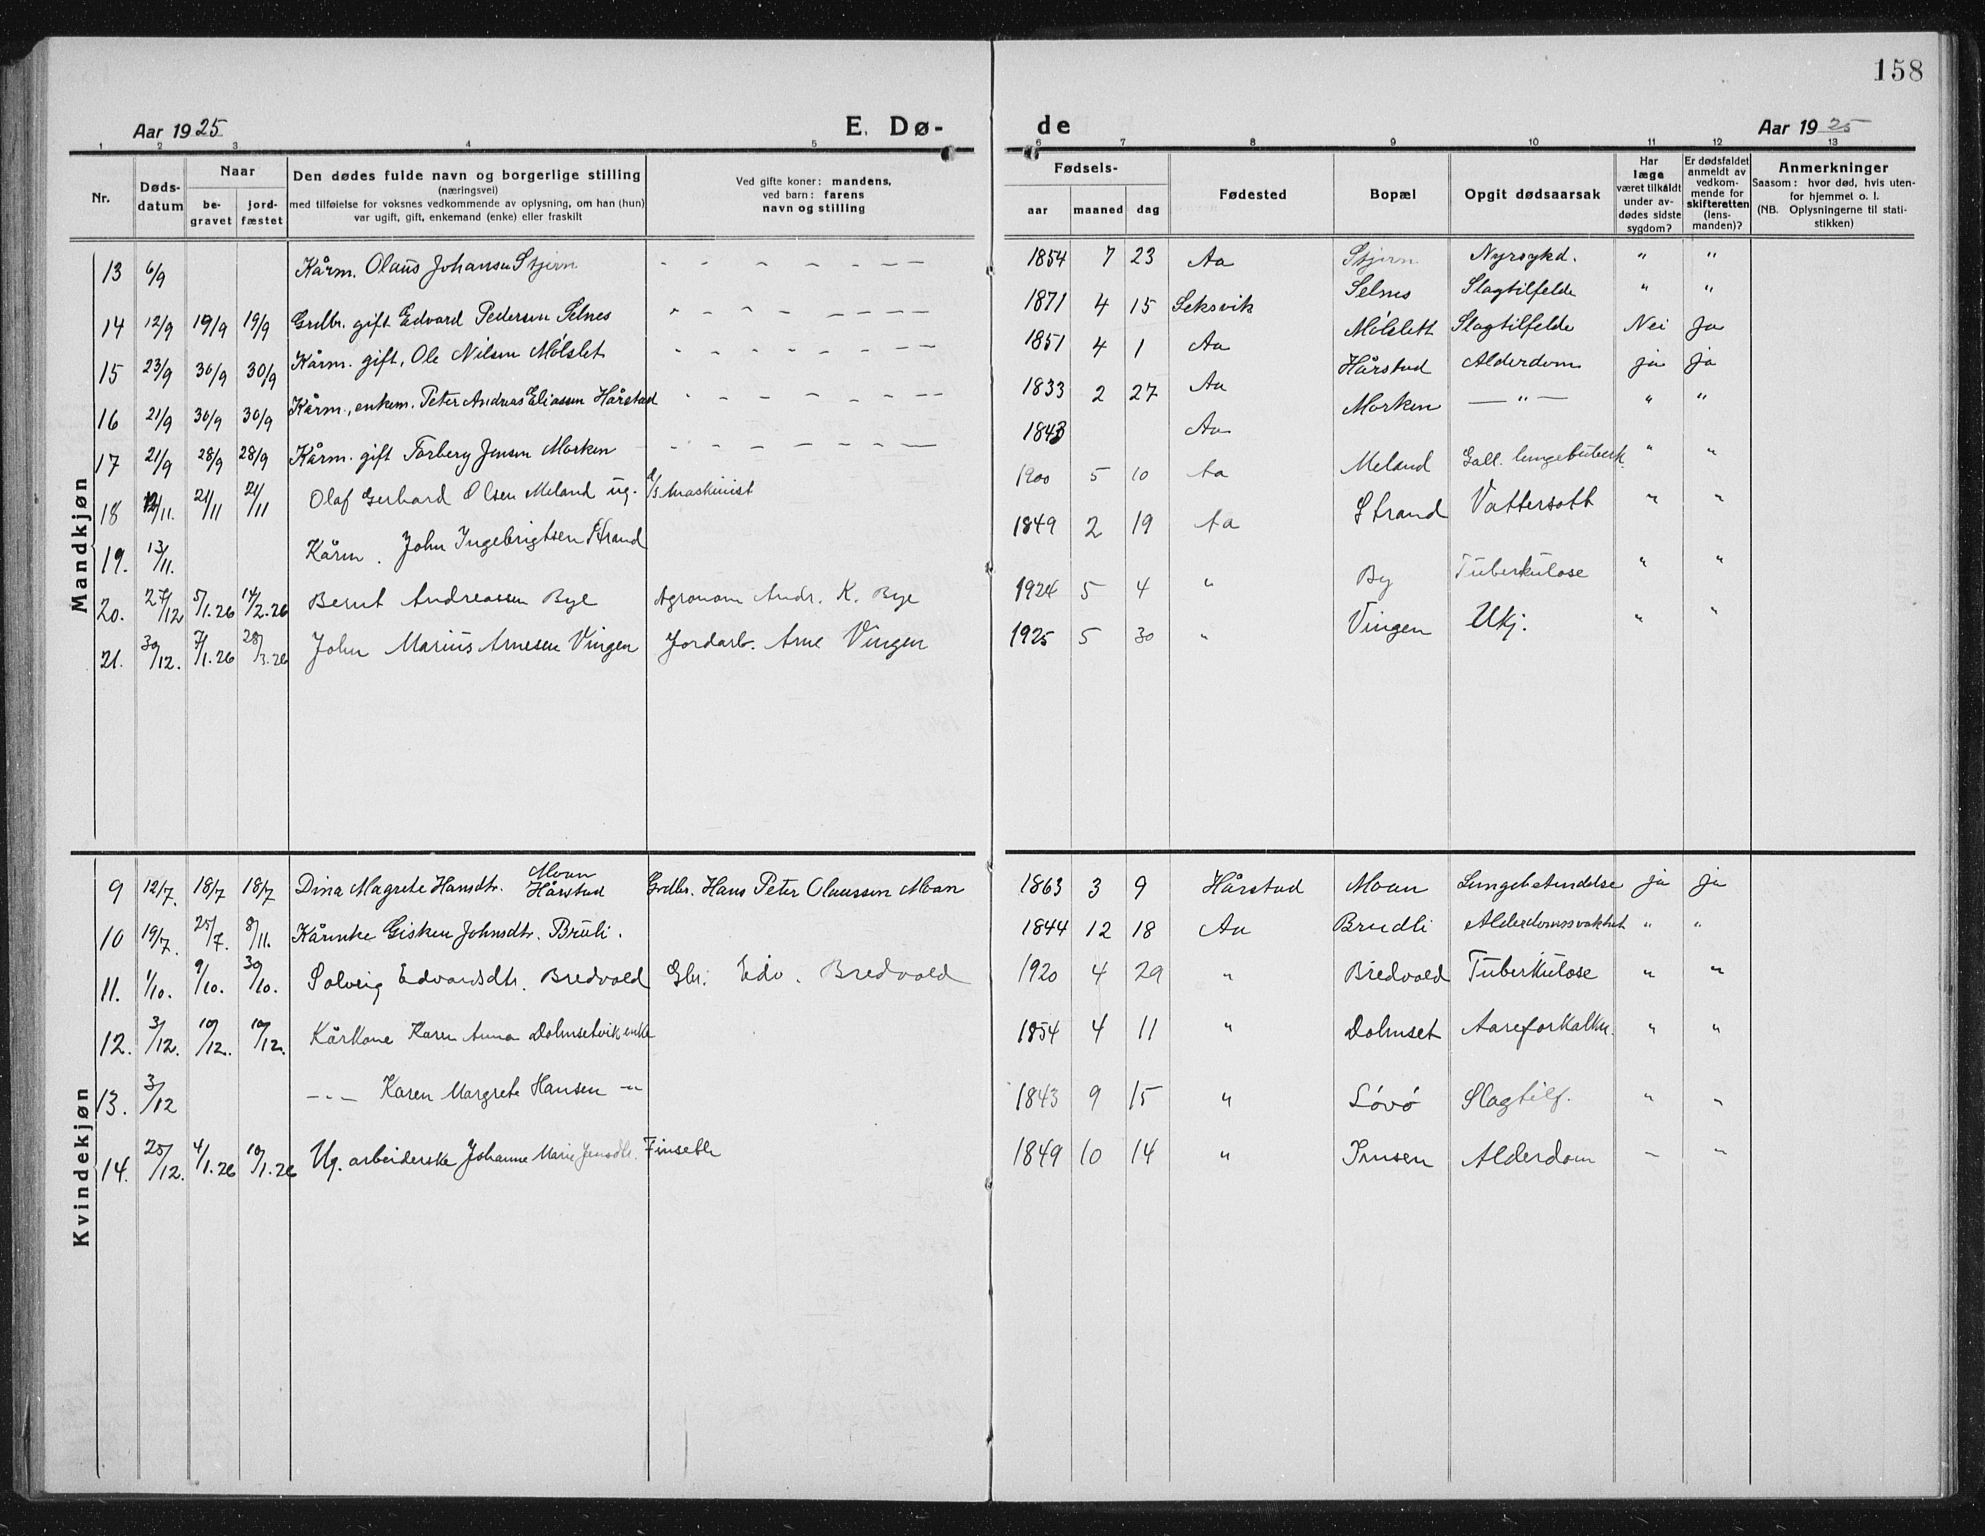 158
Aar 1925 E. Dø- de Aar 1925
1 2 3 4 5 6 7 8 9 10 11 12 13
Nr. Døds-datum Naar be-gravet jord-fæstet Den dødes fulde navn og borgerlige stilling (næringsvei) med tilføielse for voksnes vedkommende av oplysning, om han (hun) var ugift, gift, enkemand (enke) eller fraskilt Ved gifte koner: mandens, ved barn: farens navn og stilling Fødsels- aar maaned dag Fødested Bopæl Opgit dødsaarsak Har læge været tilkaldt under av-dødes sidste sygdom? Er dødsfaldet anmeldt av vedkom-mende for skifteretten (lens-manden)? Anmerkninger Saasom: hvor død, hvis uten-for hjemmet o. l. (NB. Oplysningerne til stati-stikken)
Mandkjøn
13 6/9 Kårm. Olaus Johansen Stjirn - - - - - - - 1854 7 23 Aa Stjirn Nyrsykd. " "
14 12/9 19/9 19/9 Grdbr. gift Edvard Pedersen Selnes " - - - - - - 1871 4 15 Leksvik Selnes Slagtilfelde " "
15 23/9 30/9 30/9 Kårm. gift, Ole Nilsen Mølslet - - - - - - - 1851 4 1 Aa Mølslett Slagtilfelde Nei Ja
16 21/9 30/9 30/9 Kårm., enkem. Peter Andreas Eliassen Hårstad - - - - - - - 1833 2 27 Aa Hårstad Alderdom ja ja
17 21/9 28/9 28/9 Kårm. gift Torberg Jensen Morken - - - - - - - 1843 Aa Morken — " — " "
18 12/11. 21/11 21/11 Olaf Gerhard Olsen Meland ug. Maskinist 1900 5 10 Aa Meland Gall. lungetuberk. " "
19. 13/11. Kårm. John Ingebrigtsen Strand 1849 2 19 Aa Strand Vattersott " "
20. 27/12 5/1.26 14/2.26 Bernt Andreassen Bye Agronom Andr. K. Bye 1924 5 4 " By Tuberkulose " "
21. 30/12. 7/1.26 28/3.26 John Marius Arnesen Vingen Jordarb. Arne Vingen 1925 5 30 " Vingen Ukj. " "
Kvindekjøn
9 12/7. 18/7 18/7 Dina Magrete Hansdtr. Moan Hårstad Grdbr. Hans Peter Olaussen Moan 1863 3 9 Hårstad Moan Lungebetendelse ja ja
10 19/7. 25/7. 8/11. Kårenke Gisken Johnsdtr. Brüli. 1844 12 18 Aa Brudli Alderdomssvakhet " "
11. 1/10. 9/10. 30/10. Solveig Edvardsdtr. Bredvold Gbr. Edv. Bredvold 1920 4 29 " Bredvold Tuberkulose " "
12. 3/12. 10/12. 10/12. Kårkone Karen Anna Dolmsetvik enke 1854 4 11 " Dolmset Aareforkalkn. " "
13. 3/12 - - - Karen Margrete Hansen - " 1843 9 15 " Løvø Slagtilf. " "
14. 25/12. 4/1.26 10/1.26 Ug. arbeiderske Johanne Marie Jensdtr. Finsetlr 1849 10 14 " Imsen Alderdom - "